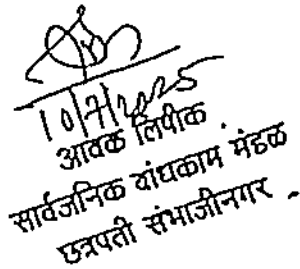 10/7/2025
आवक लिपीक
सार्वजनिक बांधकाम मंडळ
छत्रपती संभाजीनगर